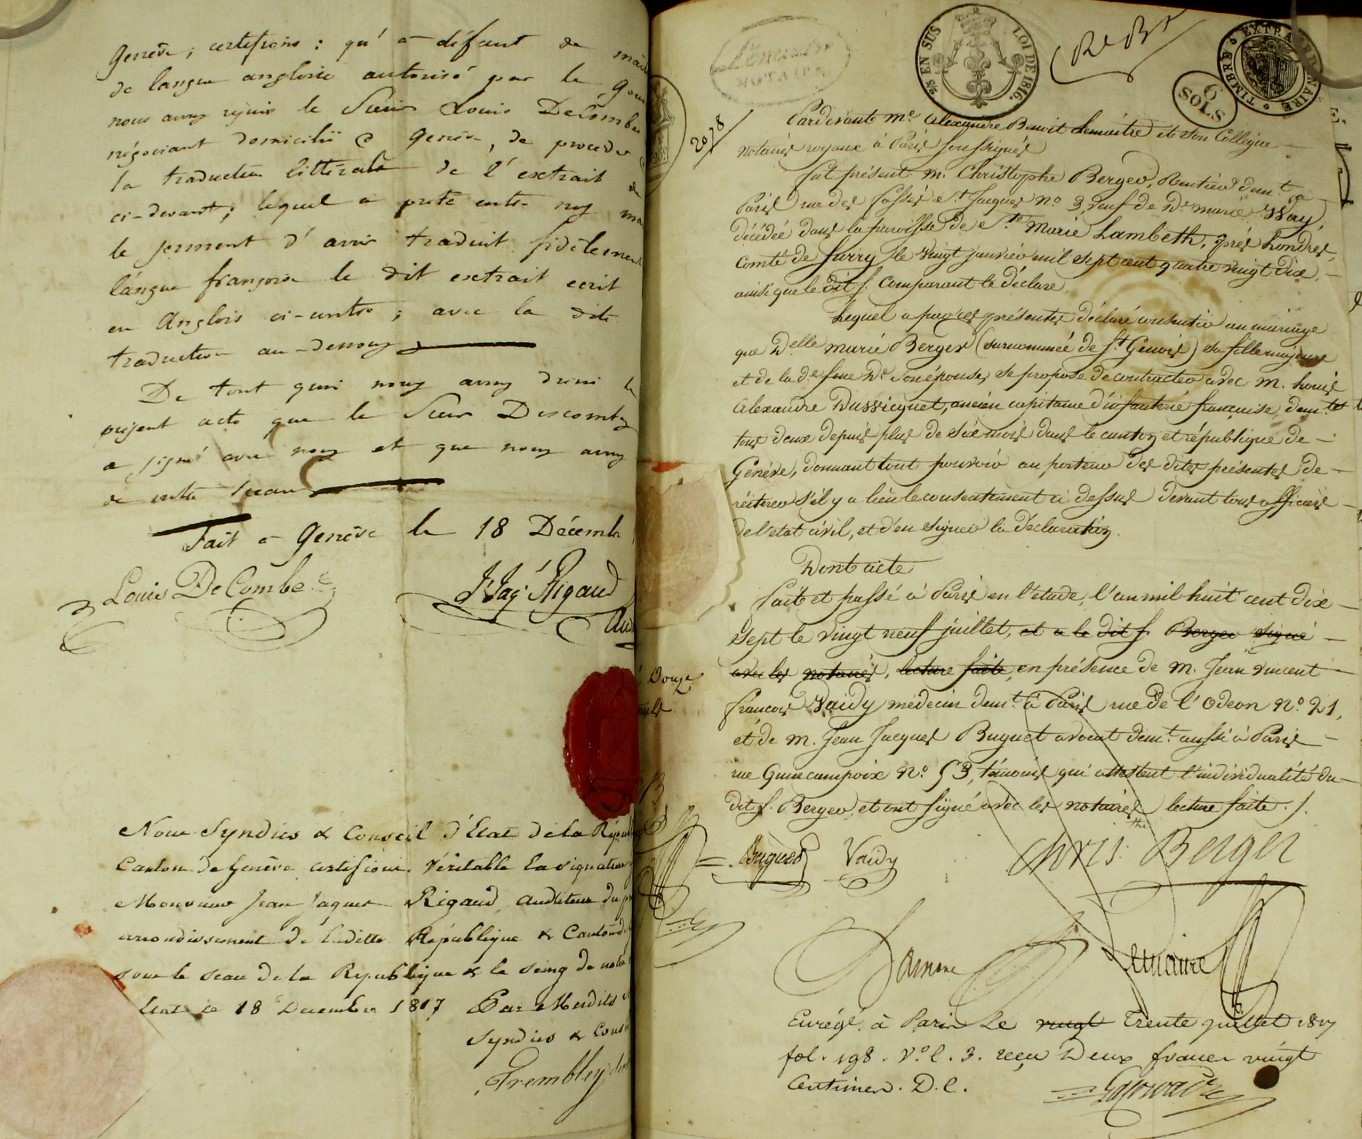 Genève, certifions : qu'à défaut de
de langue angloise autorisé par le
nous avons requis le Sieur Louis DeCombe
négociant domicilié à Genève, de procéder
la traduction littérale de l'extrait
ci-devant ; lequel a prêté entre nos
le serment d'avoir traduit fidèlement
langue françoise le dit extrait écrit
en Anglois ci-contre ; avec la dite
traduction au-dessous
De tout quoi nous avons donné le
présent acte que le Sieur Descombes
a signé avec nous et que nous avons
de notre sceau
Fait à Genève le 18 Décembr
Louis DeCombe
J Jaq Rigaud
Aud
Nous Syndics & Conseil d'Etat de la Répub
Canton de Genève certifions véritable la signature
Monsieur Jean Jaques Rigaud Auditeur du
arrondissement de la ditte République & Canton
sous le sceau de la République & le seing de notre
d'Etat ce 18 Décembre 1817 Par Mesdits
Syndics & Cons
Trembley
NOTAIRE
EN SUS
LOI DE 1816.
TIMBRE EXTRAORDINAIRE
9
SOLS
2078
Pardevant Me Alexandre Benoit Lemaitre et son Collègue
notaires royaux à Paris soussignés
fut présent M. Christophe Berger, Rentier demt à
Paris rue des fossés St Jacques No 3, veuf de De Marie Way,
décédée dans la paroisse de Ste Marie Lambeth, près Londres,
Comté de Surry le vingt janvier mil sept cent quatre vingt dix
ainsi que le dit S. Comparant le déclare
Lequel a par ces présentes déclaré consentir au mariage
que Delle Marie Berger (surnommée de St Genois) sa fille majeure
et de la de feue De son épouse, se propose de contracter avec M. Louis
Alexandre Dussicquet, ancien capitaine d'infanterie française, demt
tous deux depuis plus de six mois dans le canton et république de
Genève, donnant tout pouvoir au porteur des dites présentes de
réitérer s'il y a lieu le consentement ci dessus devant tous officiers
de l'état civil, et d'en signer la déclaration.
Dont acte
fait et passé à Paris en l'étude, l'an mil huit cent dix
sept le vingt neuf juillet, et a le dit S. Berger signé
avec les notaires, lecture faite, en présence de M. Jean Vincent
François Vaidy médecin demt à Paris rue de l'Odeon No 21,
et de M. Jean Jacques Buguet avocat demt aussi à Paris
rue Quincampoix No 53, témoins qui attestent l'individualité du
dit S. Berger et ont signé avec les notaires lecture faite.
Buguet Vaidy Chris: Berger
Lemaitre
Enregé à Paris le vingt trente juillet 1817
fol. 198. Vo c. 3. reçu Deux francs vingt
Centimes. D. C.